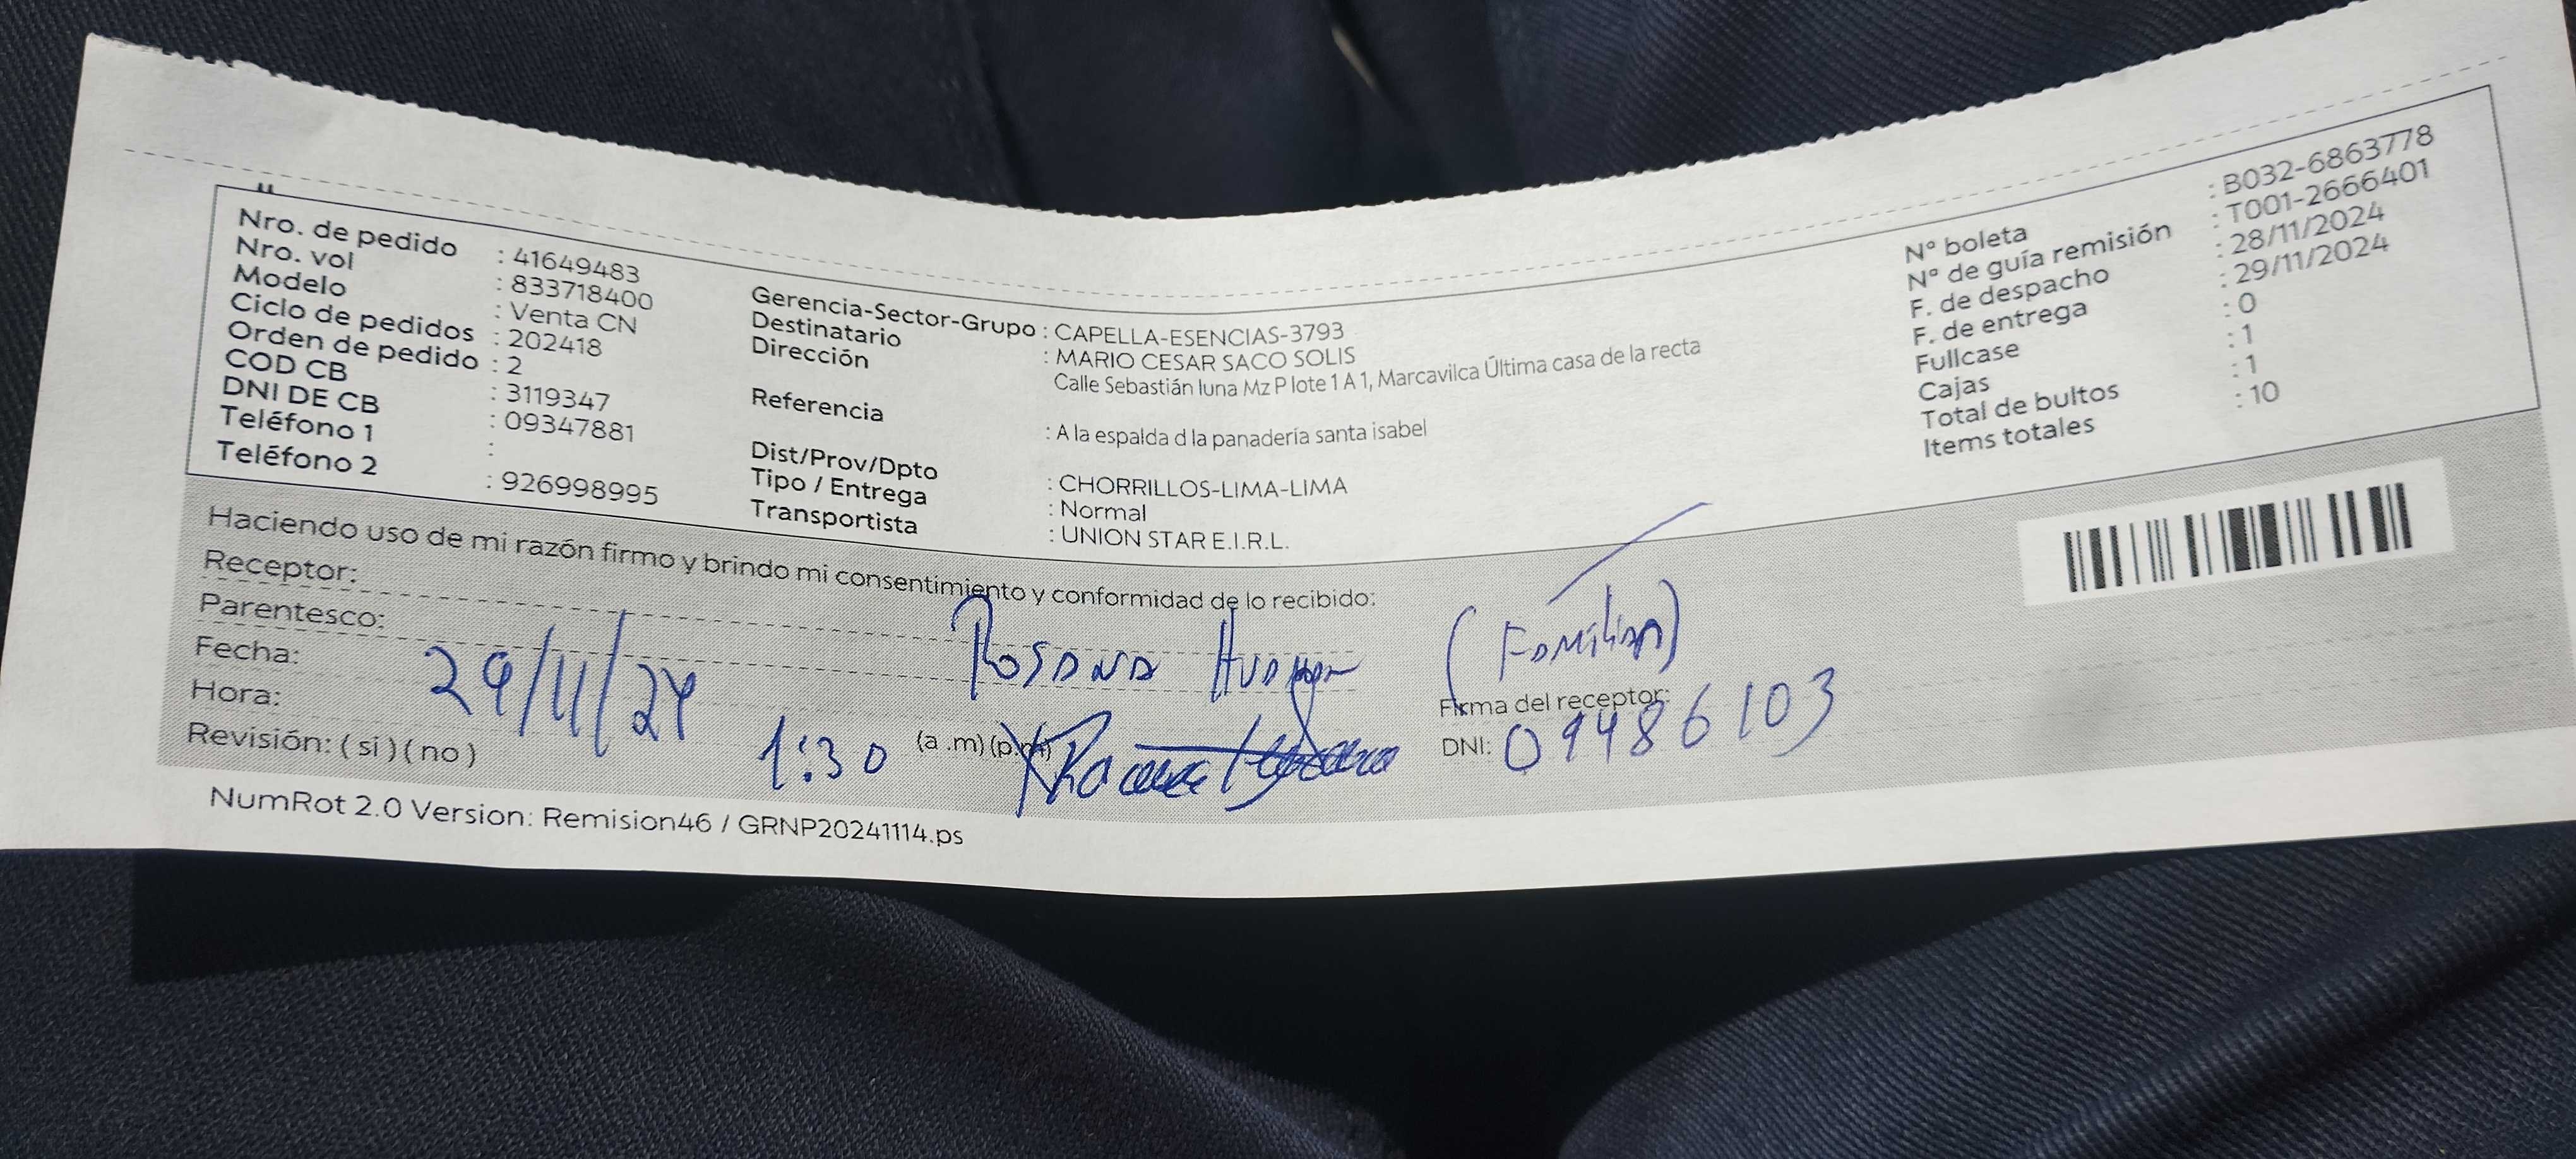 Nro. de pedido : 41649483
Nro. vol : 833718400
Modelo : Venta CN
Ciclo de pedidos : 202418
Orden de pedido : 2
COD CB : 3119347
DNI DE CB : 09347881
Teléfono 1 :
Teléfono 2 : 926998995
Gerencia-Sector-Grupo : CAPELLA-ESENCIAS-3793
Destinatario : MARIO CESAR SACO SOLIS
Dirección Calle Sebastián luna Mz P lote 1 A 1, Marcavilca Última casa de la recta
Referencia : A la espalda d la panadería santa isabel
Dist/Prov/Dpto : CHORRILLOS-LIMA-LIMA
Tipo / Entrega : Normal
Transportista : UNION STAR E.I.R.L.
N° boleta : B032-6863778
N° de guía remisión : T001-2666401
F. de despacho : 28/11/2024
F. de entrega : 29/11/2024
Fullcase : 0
Cajas : 1
Total de bultos : 1
Items totales : 10
Haciendo uso de mi razón firmo y brindo mi consentimiento y conformidad de lo recibido:
Receptor: Rosana
Parentesco: (Familiar)
Fecha: 29/11/24
Hora: 1:30 (a .m) (p.m)
Revisión: ( si ) ( no )
Firma del receptor:
DNI: 09486103
NumRot 2.0 Version: Remision46 / GRNP20241114.ps